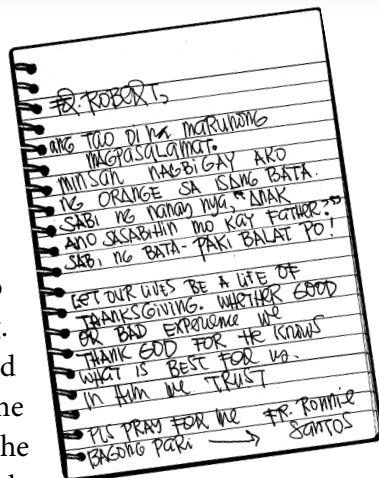 FR. ROBERT,
ANG TAO DI NA MARUNONG
MAGPASALAMAT.
MINSAN NAGBIGAY AKO
NG ORANGE SA ISANG BATA.
SABI NG NANAY NYA, "ANAK
ANO SASABIHIN MO KAY FATHER?"
SABI NG BATA - PAKI BALAT PO!
LET OUR LIVES BE A LIFE OF
THANKSGIVING. WHETHER GOOD
OR BAD EXPERIENCE WE
THANK GOD FOR HE KNOWS
WHAT IS BEST FOR US.
IN HIM WE TRUST
PLS PRAY FOR ME
BAGONG PARI → FR. RONNIE
SANTOS